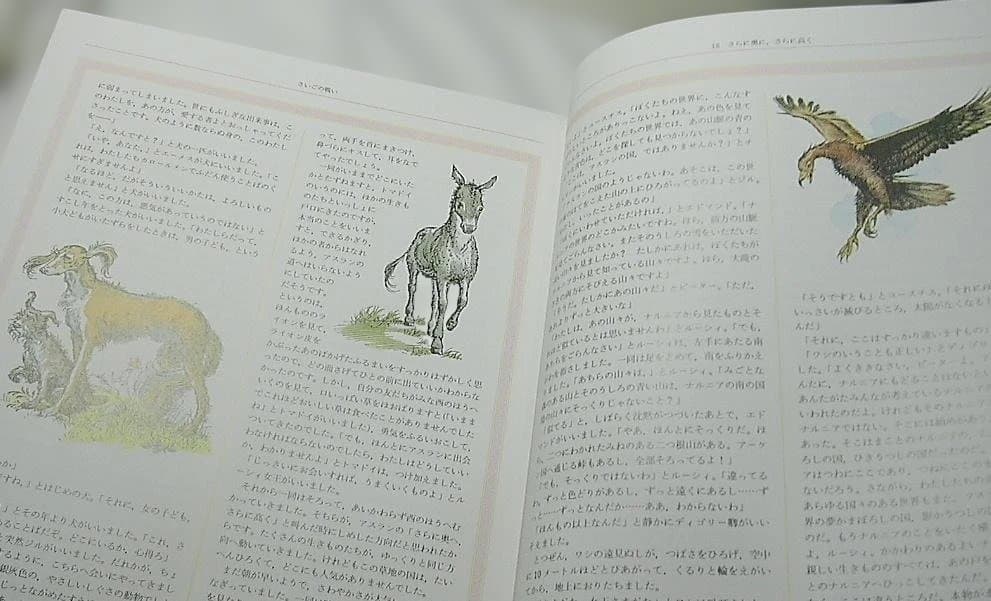 さいごの戦い
に弱まってしまいました。世にもふしぎな出来事は、こ
のわたしを、あの方が、愛する者よとおっしゃってくだ
さったことです。犬のように数ならぬ身の、このわたし
を――」
「え、なんですと？」と犬の一匹がいいました。
「いや、あなた。」エーメスが犬にいいました。「こ
れは、わたしたちカロールメンでふだん使うことばのく
せにすぎませんよ」
「なるほど。だがそういういいかたは、よろしいもの
と思えません」と犬がいいました。
「なに、この方は、悪気があっていうのではない」と
すこし年をとった犬がいいました。「わたしらだって、
小犬どもがいたずらをしたときは、男の子ども、という
か」
すね。」とはじめの犬。「それに、女の子ども、
とその年より犬がいいました。「これ、さ
ることばだぞ。どこにいるか、心得ろ」
と突然ジルがいいました。だれかが、ちょ
するように、こちらへ会いにやってきまし
銀灰色の、やさしいしぐさの動物でし
って、両手を首にまきつけ、
鼻づらにキスして、耳をなで
てやったでしょう。
一同がいままでどこにいた
かとたずねますと、トマドイ
のいうのには、ほかの生きも
のたちといっしょに
戸口にきたのですが、
本当のことをいいま
すと、できるかぎり、
ほかの者からはなれ
るよう、アスランの
道へはいらないよう
にしていたの
だそうです。
というのは、
ほんものの
ライオンを見て、
ライオン皮を
かぶったあのばかげたふるまいをすっかりはずかしく思
ったので、どの面さげてひとの前に出ていいかわからな
かったのです。しかし、自分の友だちがみな西のほうへ
いくのを見て、口いっぱい草をほおばりますと(「いままで
これほどおいしい草は食べたことがありませんでした
ね」とトマドイがいいました)、勇気をふるいおこして、
ついてきたのでした。「でも、ほんとにアスランに出会
わなければならないのでしたら、わたしはどうしていい
か、わかりませんよ」とトマドイは、つけ加えました。
「じっさいにお会いすれば、うまくいくものよ」とル
ーシィ女王がいいました。
それから一同はそろって、あいかわらず西のほうへむ
かっていきました。そちらが、アスランの「さらに奥へ、
さらに高く」と叫んだ時にしめした方向だと思われたか
らです。たくさんの生きものたちが、ゆっくりと同じ方
向へ動いていきました。けれどもこの草地の国は、たい
へんひろくて、どこにも人気がありませんでした。
まだ朝が早いようで、さわやかさが大
16 さらに奥に、さらに高く
とユースチス。「ぼくたちの世界に、こんなす
ところがありっこないよ。ねえ、あの色を見て
ぼくたちの世界では、あの山脈の青の
どこを探しても見つからないでしょ？」
アスランの国、ではありませんか？」とチ
の国のようじゃないわ。あそこは、この世
てをこえた山の上にひろがってるのよ」とジル。
いったことがあるの」
いわせていただければ。」とエドマンド。「ナ
世界のどこかみたいですね。ほら、前方の山脈
さい。またそのうしろの雪をいただいた
見ましたか？ たしかにあれは、ぼくたちが
から見て知っている山々ですよ。ほら、大滝の
方にそびえる山々ですよ」
たしかにあの山々だ」とピーター。「ただ、
ずっと大きいな」
あの山々が、ナルニアから見たものとそ
似てるとは思いませんわ」とルーシィ。「でも、
をごらんない」とルーシィは、左手にあたる南
指さしました。一同は足をとめて、南をふりかえ
「あちらの山々は。」とルーシィ。「みごとな
ある山とそのうしろの青い山は、ナルニアの南の国
山々にそっくりじゃないこと？」
「似てる」と、しばらく沈黙がつづいたあとで、エド
マンドがいいました。「やあ、ほんとにそっくりだ。ほ
ら、二つにわかれたみねのある二つ根山がある。アーケ
ン国へ通じる峠もあるし、全部そろってるよ！」
「でも、そっくりではないわ」とルーシィ。「違ってる
わ。ずっと色どりがあるし、ずっと遠くにあるし……ず
っと……ずっとなんだか……ああ、わからないわ」
「ほんもの以上なんだ」と静かにディゴリー卿がいい
そえました。
とつぜん、ワシの遠見ぬしが、つばさをひろげ、空中
に10メートルほどとびあがって、くるりと輪をえがい
てから、地上におりたちました。
「そうですとも」とユースチス。「それには
いっさいが滅びるところ、太陽がなくなる
んだ」
「それに、ここはすっかり違いますもの」
「ワシのいうことも正しい」とディゴリ
した。「よくききなさい、ピーターよ。
んたに、ナルニアにもどることはないと
あんたがたみんなが考えているナルニ
いわれたのだよ。けれどもそのナルニア
ナルニアではない。
あった。そこはまことのナルニアの、
しろの国、ひきうつしの国だったのだ。
アはつねにここであり、つねにここ
ないだろう。さながら、わたしたちの
あらゆる国々のある世界もまた、アス
界の夢かまぼろしの国、影かうつしの
だ。もうナルニアのことをいたく嘆
よ、ルーシィ。かかわりのあるよい
親しい生きもののすべては、あの戸を
とのナルニアへひっこしてきたんだ。